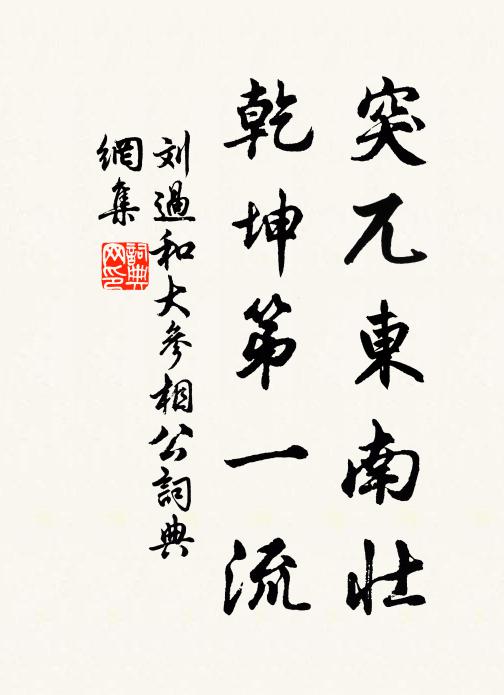 突兀東南壯
乾坤第一流
刘過和大參相公詞典
網集
詞典網印